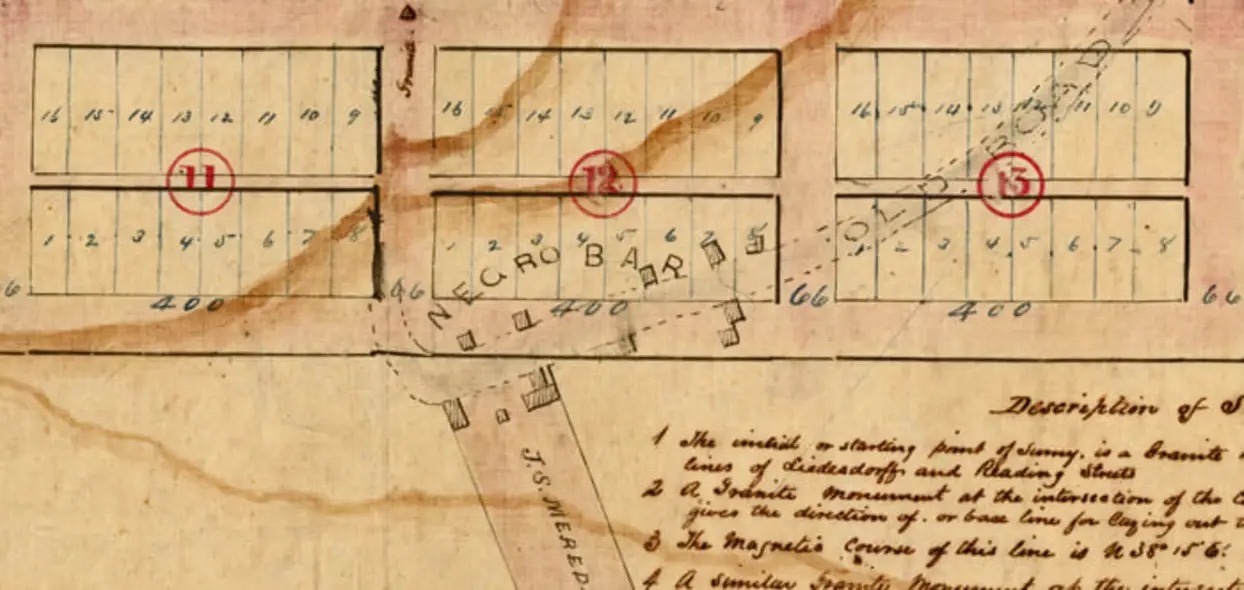 Granite
16 15 14 13 12 11 10 9
11
1 2 3 4 5 6 7 8
400
16 15 14 13 12 11 10 9
12
1 2 3 4 5 6 7 8
NEGRO BAR
400
66
16 15 14 13 12 11 10 9
13
1 2 3 4 5 6 7 8
OLD ROAD
400
66
J.S. MERED
Description of S
1 The initial or starting point of Survey. is a Granite
lines of Leidesdorff and Reading Streets
2 A Granite Monument at the intersection of the
gives the direction of. or base line for laying out
3 The Magnetic Course of this line is N 38° 15' E.
4 A similar Granite Monument at the intersect